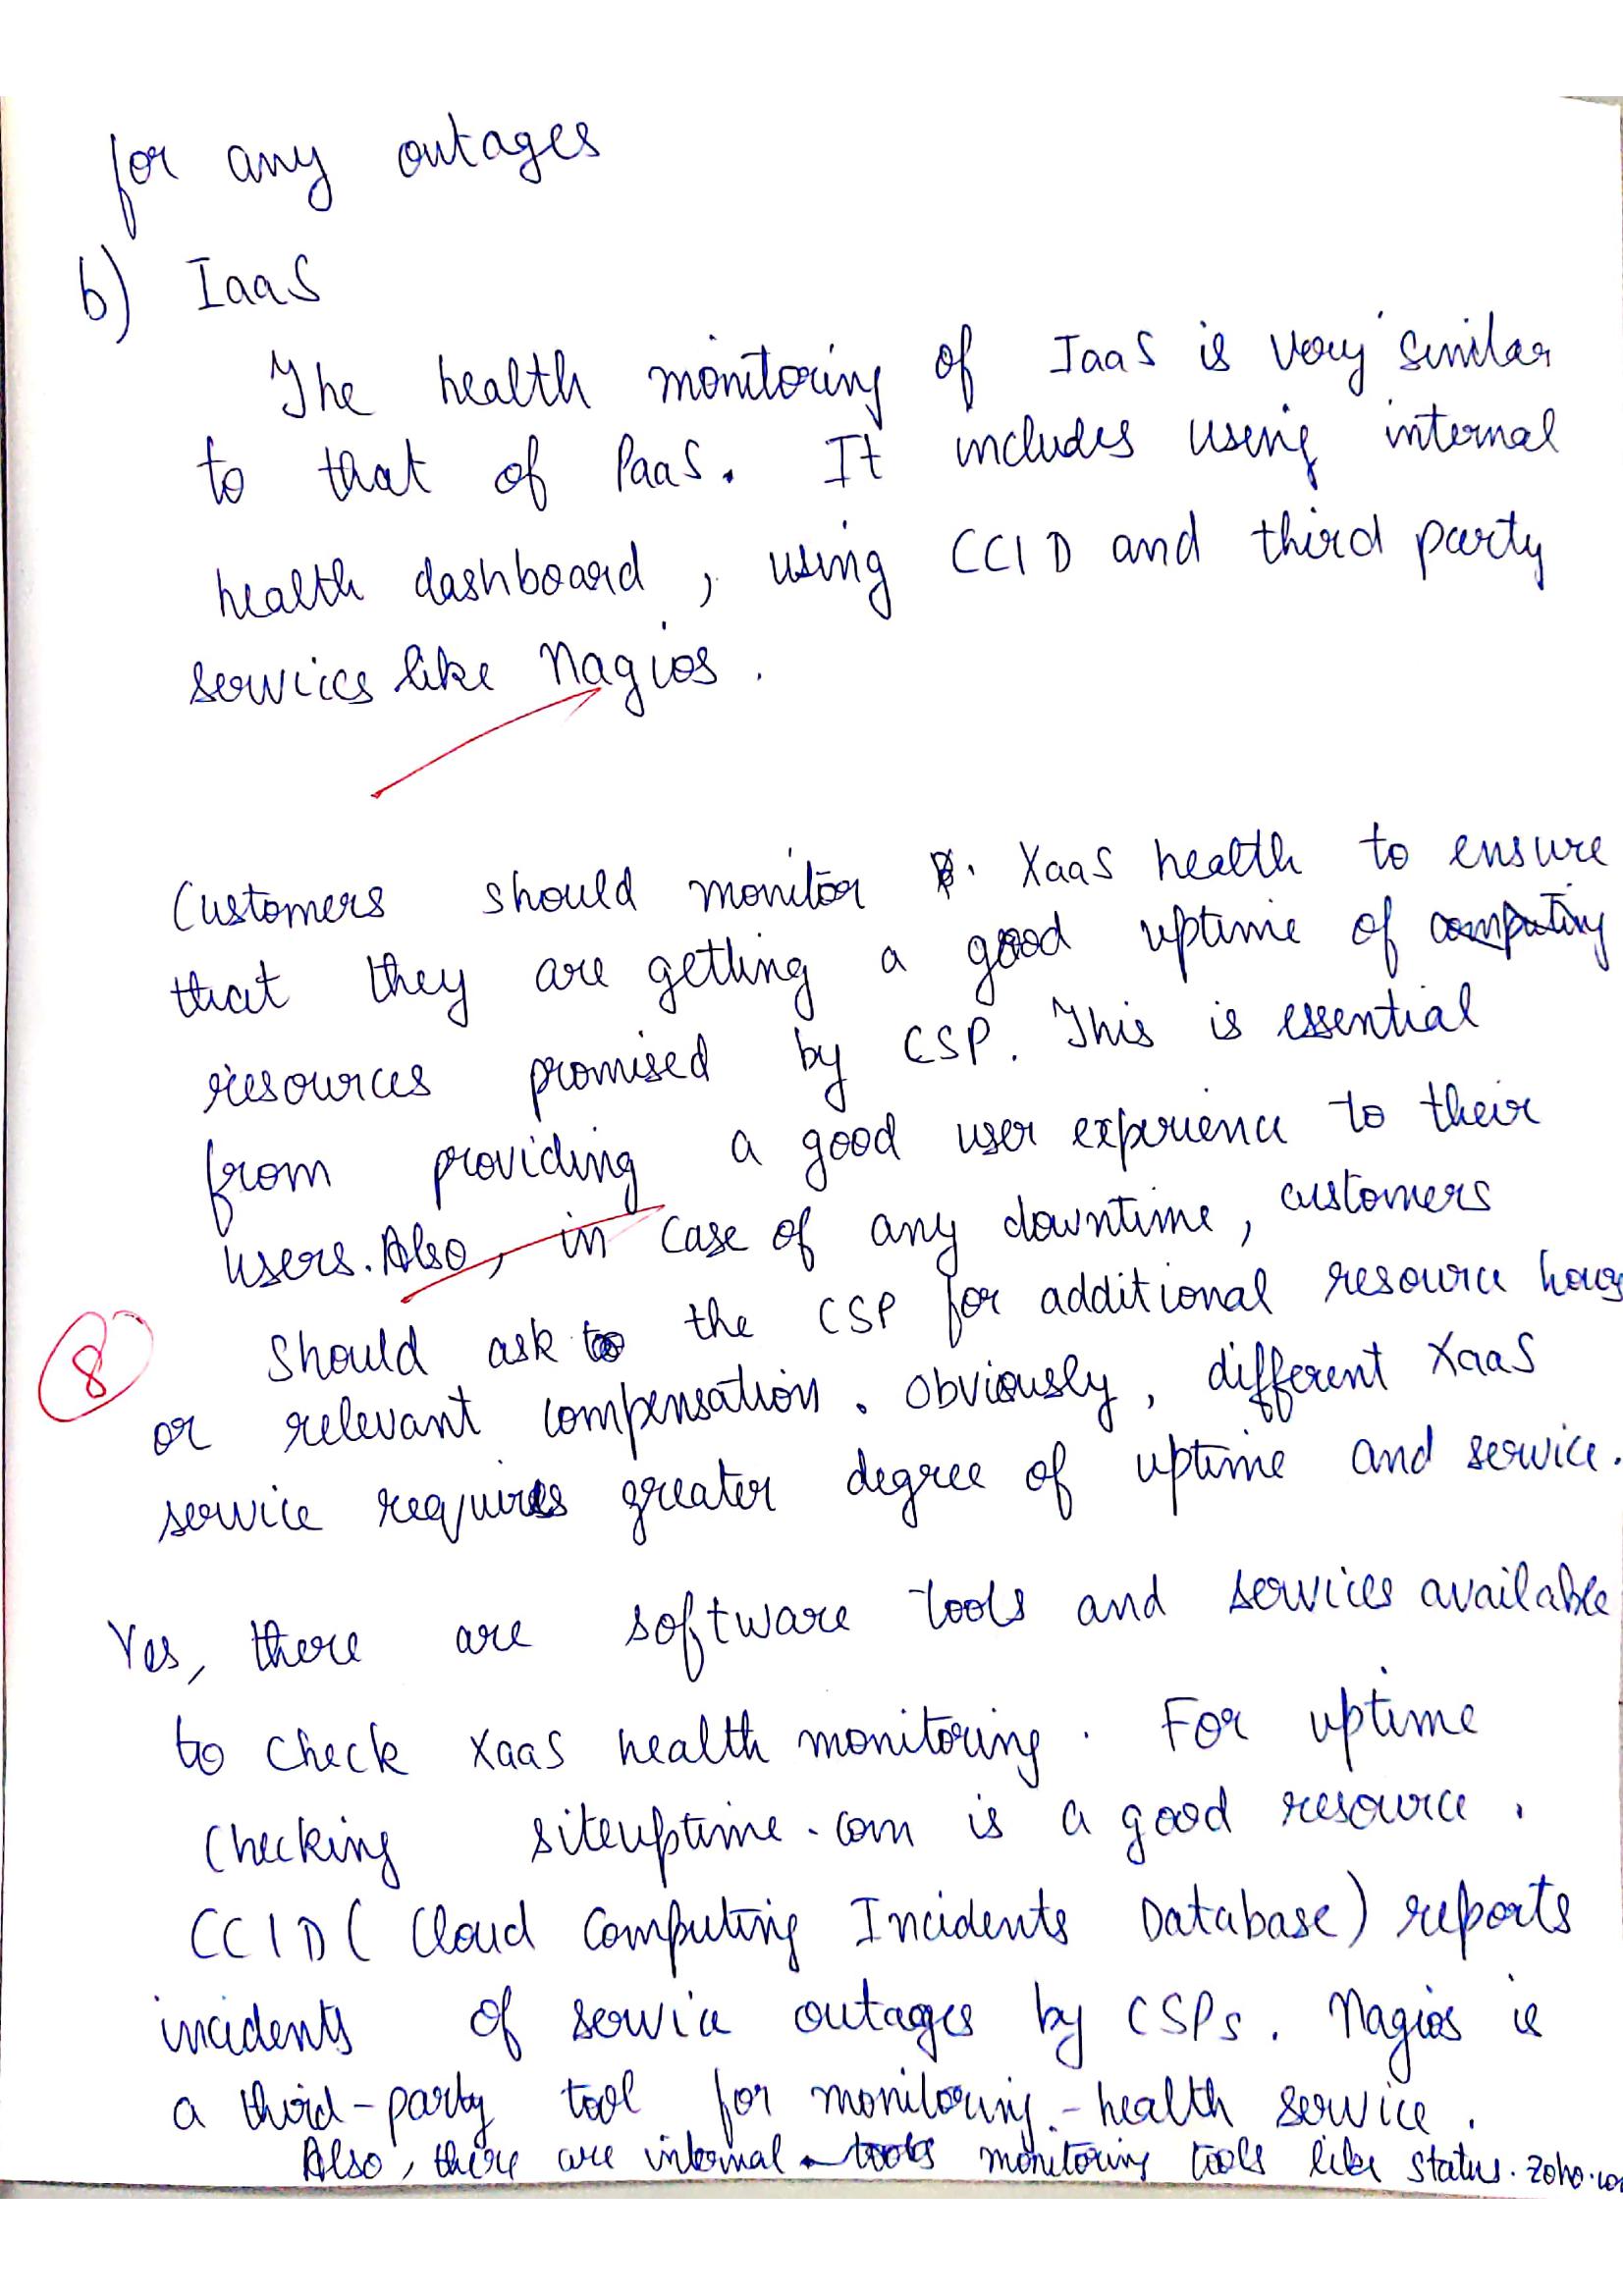 for any outages
b) IaaS
The health monitoring of IaaS is very similar
to that of PaaS. It includes using internal
health dashboard, using CCID and third party
services like Nagios.
Customers should monitor XaaS health to ensure
that they are getting a good uptime of computing
resources promised by CSP. This is essential
from providing a good user experience to their
users. Also, in case of any downtime, customers
should ask to the CSP for additional resource hours
8
or relevant compensation. Obviously, different XaaS
service requires greater degree of uptime and service.
Yes, there are software tools and services available
to check XaaS health monitoring. For uptime
checking siteuptime.com is a good resource.
CCID (Cloud Computing Incidents Database) reports
incidents of service outages by CSPs. Nagios is
a third-party tool for monitoring - health service.
Also, there are internal tools monitoring tools like status.zoho.com